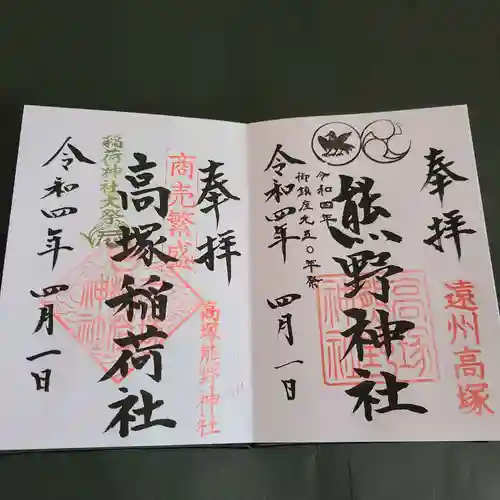 奉拝
遠州高塚
熊野神社
令和四年
御鎮座九五〇年祭
令和四年 四月一日
奉拝
商売繁盛
高塚熊野神社
高塚稲荷社
稲荷神社大祭
令和四年 四月一日